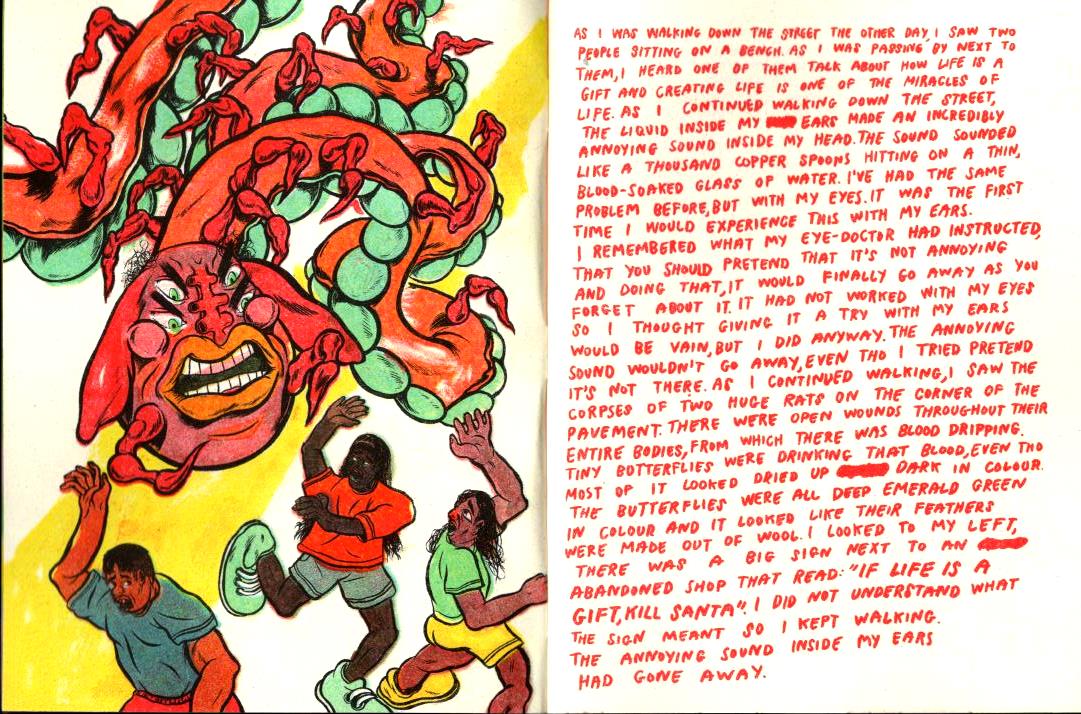 AS I WAS WALKING DOWN THE STREET THE OTHER DAY, I SAW TWO
PEOPLE SITTING ON A BENCH. AS I WAS PASSING BY NEXT TO
THEM, I HEARD ONE OF THEM TALK ABOUT HOW LIFE IS A
GIFT AND CREATING LIFE IS ONE OF THE MIRACLES OF
LIFE. AS I CONTINUED WALKING DOWN THE STREET,
THE LIQUID INSIDE MY EARS MADE AN INCREDIBLY
ANNOYING SOUND INSIDE MY HEAD. THE SOUND SOUNDED
LIKE A THOUSAND COPPER SPOONS HITTING ON A THIN,
BLOOD-SOAKED GLASS OF WATER. I'VE HAD THE SAME
PROBLEM BEFORE, BUT WITH MY EYES. IT WAS THE FIRST
TIME I WOULD EXPERIENCE THIS WITH MY EARS.
I REMEMBERED WHAT MY EYE-DOCTOR HAD INSTRUCTED,
THAT YOU SHOULD PRETEND THAT IT'S NOT ANNOYING
AND DOING THAT, IT WOULD FINALLY GO AWAY AS YOU
FORGET ABOUT IT. IT HAD NOT WORKED WITH MY EYES
SO I THOUGHT GIVING IT A TRY WITH MY EARS
WOULD BE VAIN, BUT I DID ANYWAY. THE ANNOYING
SOUND WOULDN'T GO AWAY, EVEN THO I TRIED PRETEND
IT'S NOT THERE. AS I CONTINUED WALKING, I SAW THE
CORPSES OF TWO HUGE RATS ON THE CORNER OF THE
PAVEMENT. THERE WERE OPEN WOUNDS THROUGHOUT THEIR
ENTIRE BODIES, FROM WHICH THERE WAS BLOOD DRIPPING.
TINY BUTTERFLIES WERE DRINKING THAT BLOOD, EVEN THO
MOST OF IT LOOKED DRIED UP DARK IN COLOUR.
THE BUTTERFLIES WERE ALL DEEP EMERALD GREEN
IN COLOUR AND IT LOOKED LIKE THEIR FEATHERS
WERE MADE OUT OF WOOL. I LOOKED TO MY LEFT,
THERE WAS A BIG SIGN NEXT TO AN
ABANDONED SHOP THAT READ: "IF LIFE IS A
GIFT, KILL SANTA". I DID NOT UNDERSTAND WHAT
THE SIGN MEANT SO I KEPT WALKING.
THE ANNOYING SOUND INSIDE MY EARS
HAD GONE AWAY.